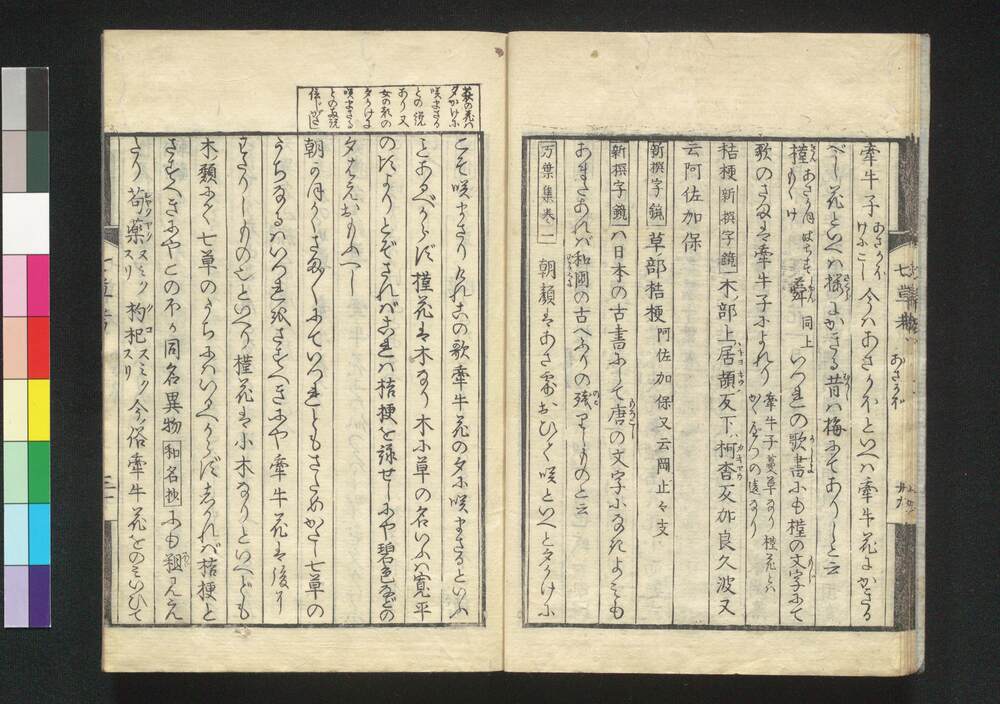 牽牛子 あさがほ けにこし 今はあさがほといへハ牽牛花にかきる
べし花といへハ桜にかきる昔ハ梅にてありしと云
槿 あさがほ はちす きばち もくげ 蕣 同上 いづれの歌書にも槿の文字にて
歌のさまは牽牛子によれり 牽牛子蔓草なり槿花とハ
桔梗 新撰字鏡 木部 上居頡反下柯杏反加良久波又
云阿佐加保
新撰字鏡 草部桔梗 阿佐加保又云岡止々支
新撰字鏡 ハ日本の古書にして唐の文字になきよみも
あまたあれバ和国の古へぶりの残りしものと云
万葉集巻一 朝顔はあさ露おひて咲といへど夕かけに
七草考
あさがほ
萩の花ハ
夕かけに
咲まさる
との説
あり又
女の花の
夕かけに
咲まさる
との両説
信じがたし
こそ咲まさりけれこの歌牽牛花の夕に咲まさるといふ
ことあるべからず槿花は木なり木に草の名いふハ寛平
のころよりとぞされバこれハ桔梗を詠せしにや碧色などの
夕はえおもふべし
朝がほかくさま〲にていづれともさだめがたし七草の
うちなるハいづれをさすべきにや牽牛花は後に
わたりしもの也といへり槿花は小木なりといへども
木類にて七草のうちにハいるべからず志かれバ桔梗と
さすべきにやこの外同名異物 和名抄 にも粗見え
たり 芍薬 枸杞 今俗牽牛花をのミいひて